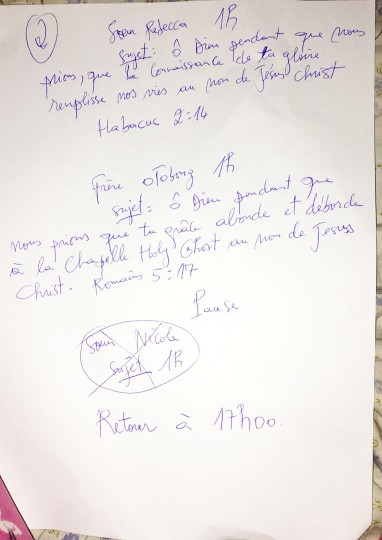 2
Sœur Rebecca 1h
Sujet: ô Dieu pendant que nous
prions, que la connaissance de ta gloire
remplisse nos vies au nom de Jésus Christ
Habacuc 2:14
Frère OTobong 1h
Sujet: ô Dieu pendant que
nous prions que ta grâte abonde et déborde
à la Chapelle Holy Ghost au nom de Jesus
Christ. Romains 5:17
Pause
Sœur Nicole
Sujet 1h
Retour à 17h00.